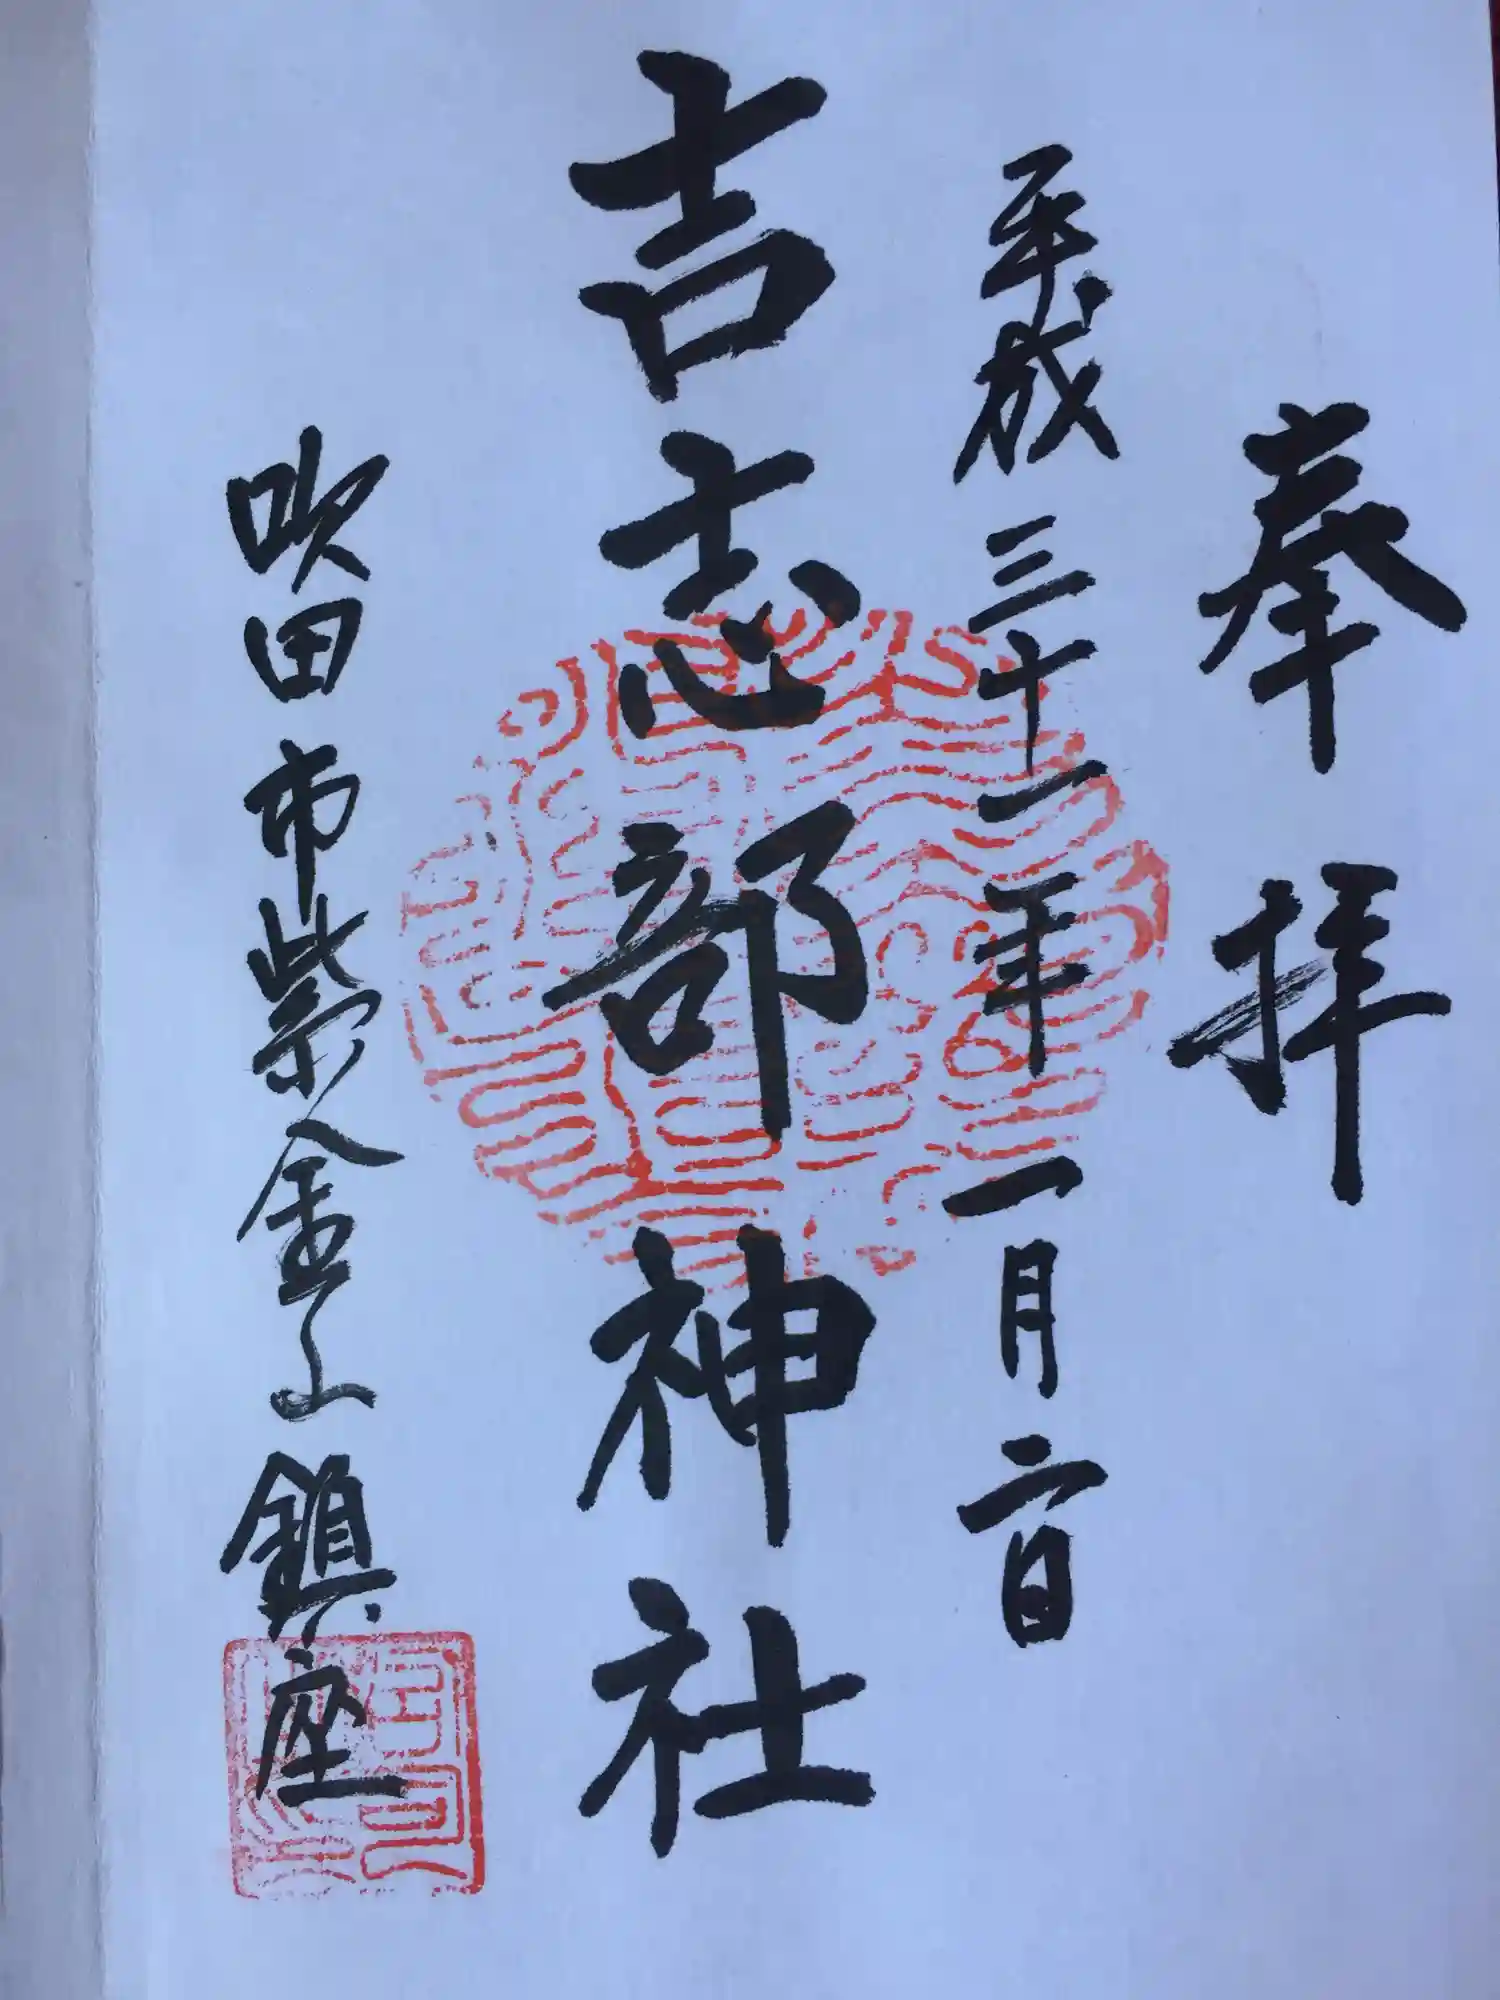 奉拝
平成三十一年一月二日
吉志部神社
吹田市紫金山鎮座